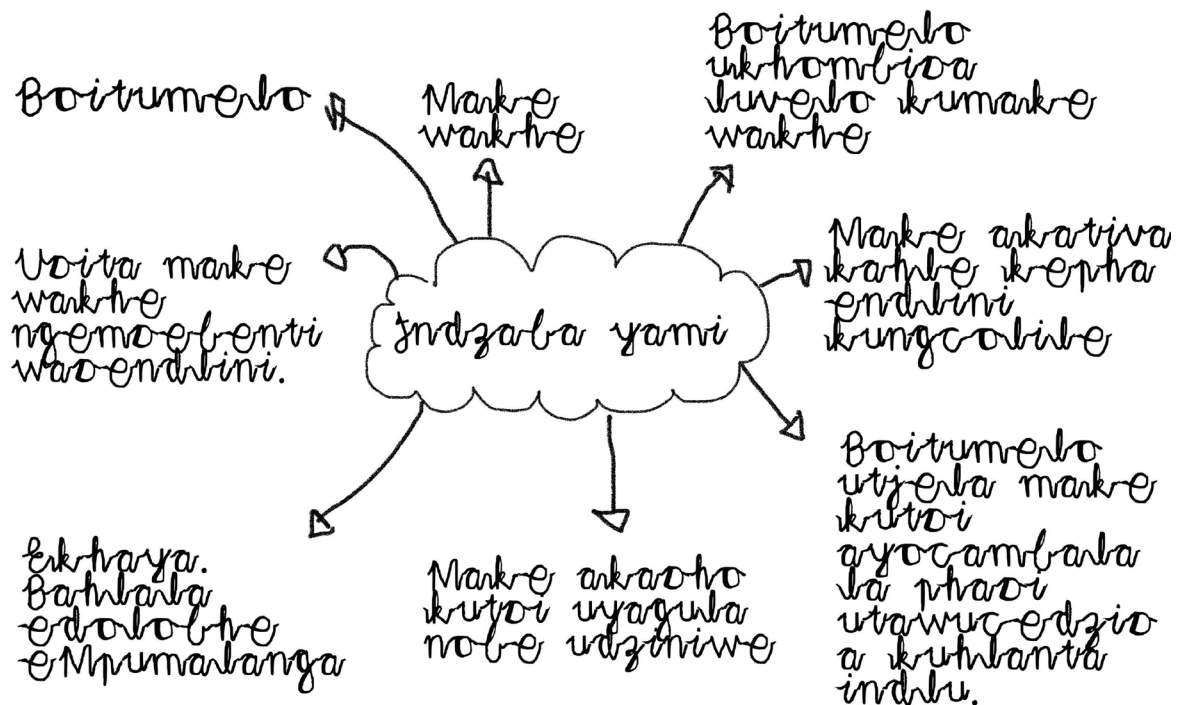 Boitumelo
Make
wakhe
Boitumelo
ukhombisa
luvelo kumake
wakhe
Usita make
wakhe
ngemsebenti
wasendlini.
Indzaba yami
Make akativa
kahle kepha
endlini
kungcolile
Ekhaya.
Bahlala
edolobhe
eMpumalanga
Make akasho
kutsi uyagula
nobe udziniwe
Boitumelo
utjela make
kutsi
ayocambala
la phasi
utawucedzis
a kuhlanta
indlu.